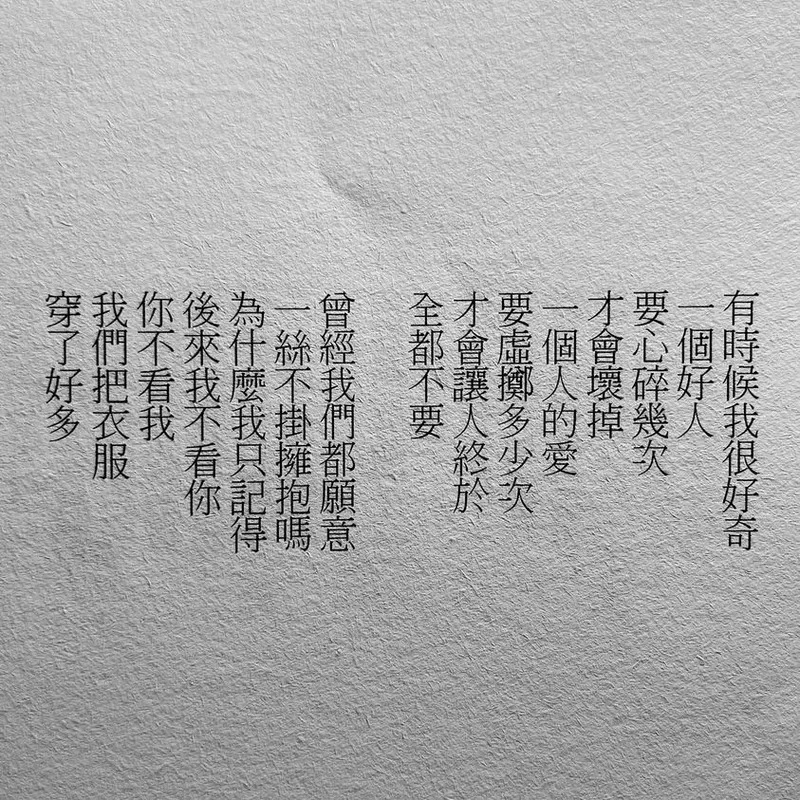 有時候我很好奇
一個好人
要心碎幾次
才會壞掉
一個人的愛
要虛擲多少次
才會讓人終於
全都不要
曾經我們都願意
一絲不掛擁抱嗎
為什麼我只記得
後來我不看你
你不看我
我們把衣服
穿了好多